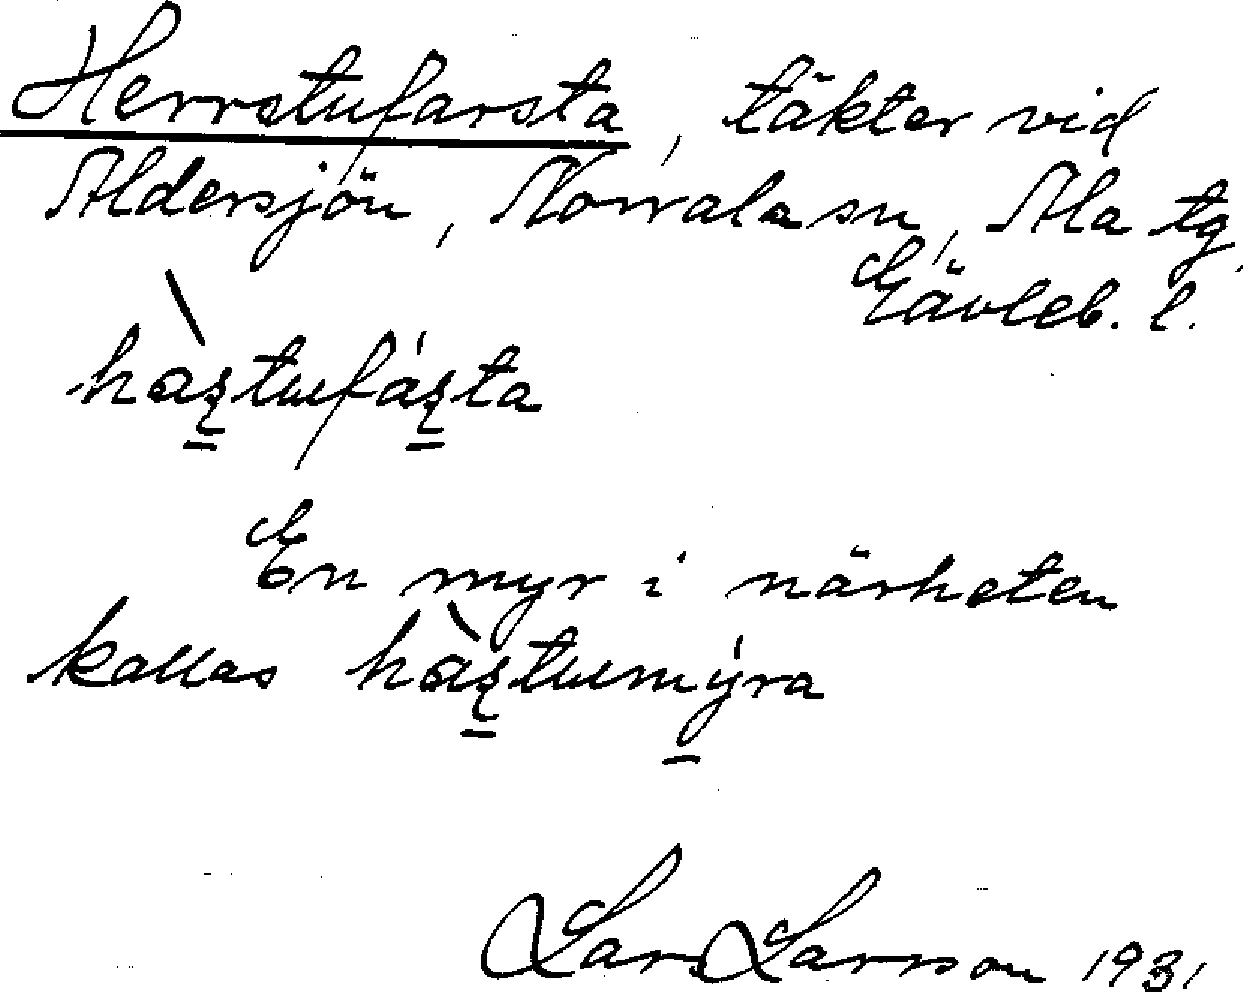 Herrstufarsta, täkter vid
Aldersjön, Norrala sn, Ala tg,
Gävleb. l.
hàʂtufáʂta
En myr i närheten
kallas hàʂtumýra
Lars Larsson 1931